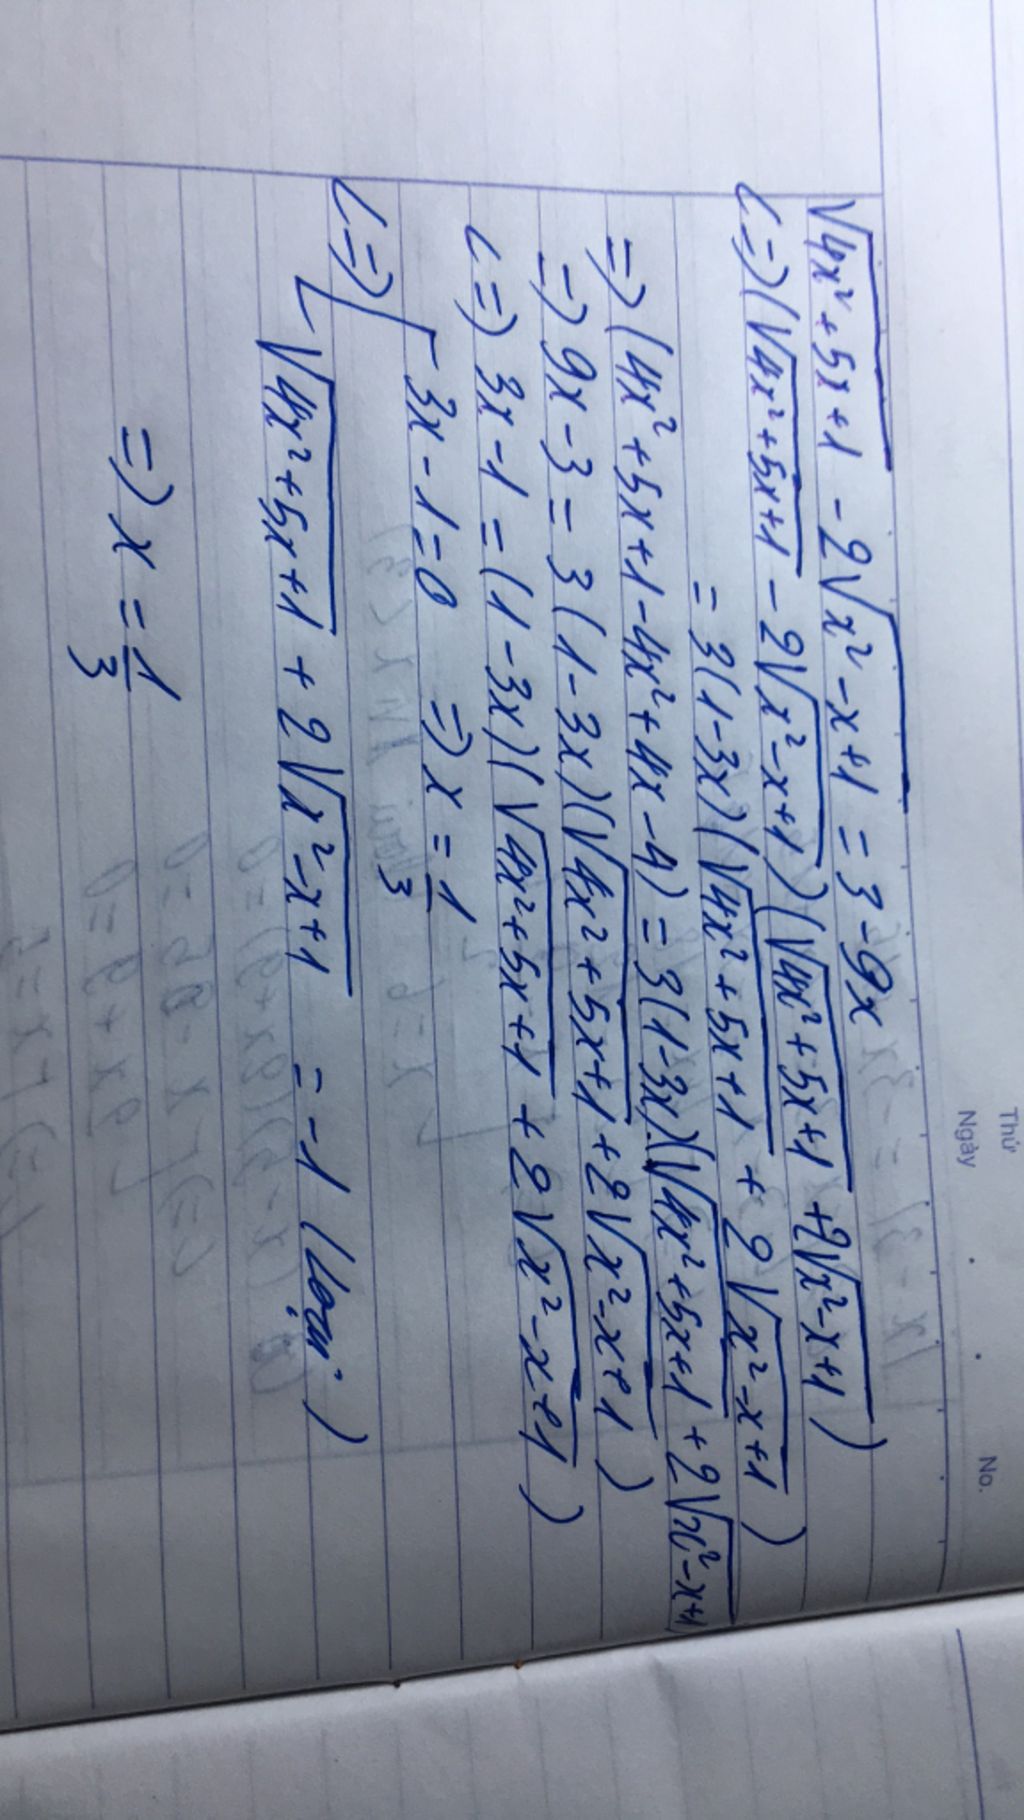 Thứ
Ngày
No.
√(4x²+5x+1) - 2√(x²-x+1) = 3 - 9x
<=> (√(4x²+5x+1) - 2√(x²-x+1))(√(4x²+5x+1) + 2√(x²-x+1))
= 3(1-3x)(√(4x²+5x+1) + 2√(x²-x+1))
=> (4x²+5x+1-4x²+4x-4) = 3(1-3x)(√(4x²+5x+1) + 2√(x²-x+1)
=> 9x-3 = 3(1-3x)(√(4x²+5x+1) + 2√(x²-x+1))
<=> 3x-1 = (1-3x)(√(4x²+5x+1) + 2√(x²-x+1))
<=> [ 3x-1=0 => x = 1/3
√(4x²+5x+1) + 2√(x²-x+1) = -1 (loại)
=> x = 1/3